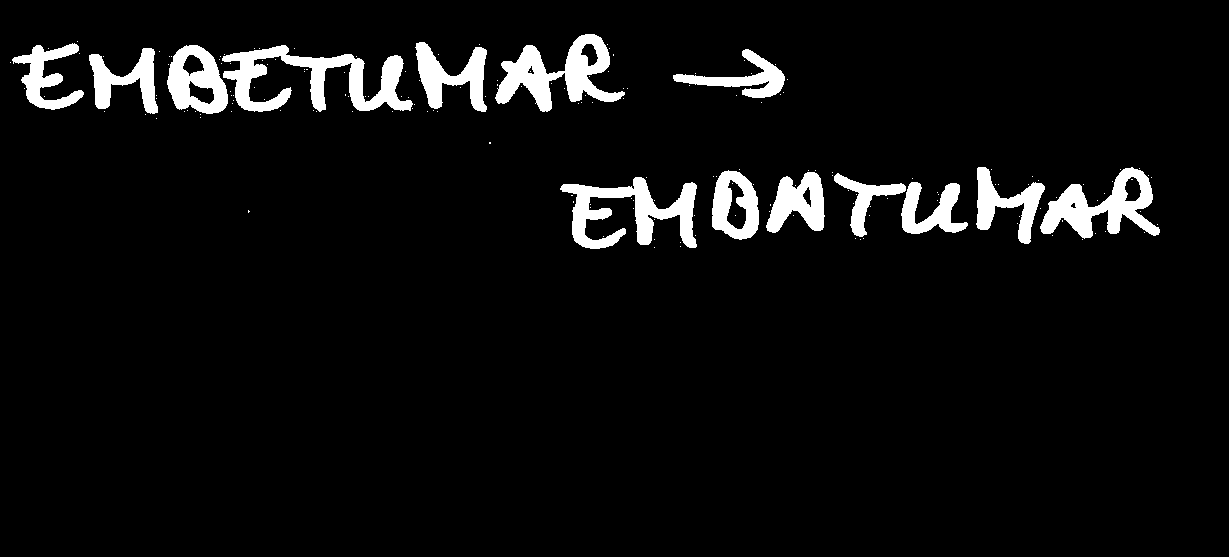 EMBETUMAR →
EMBATUMAR